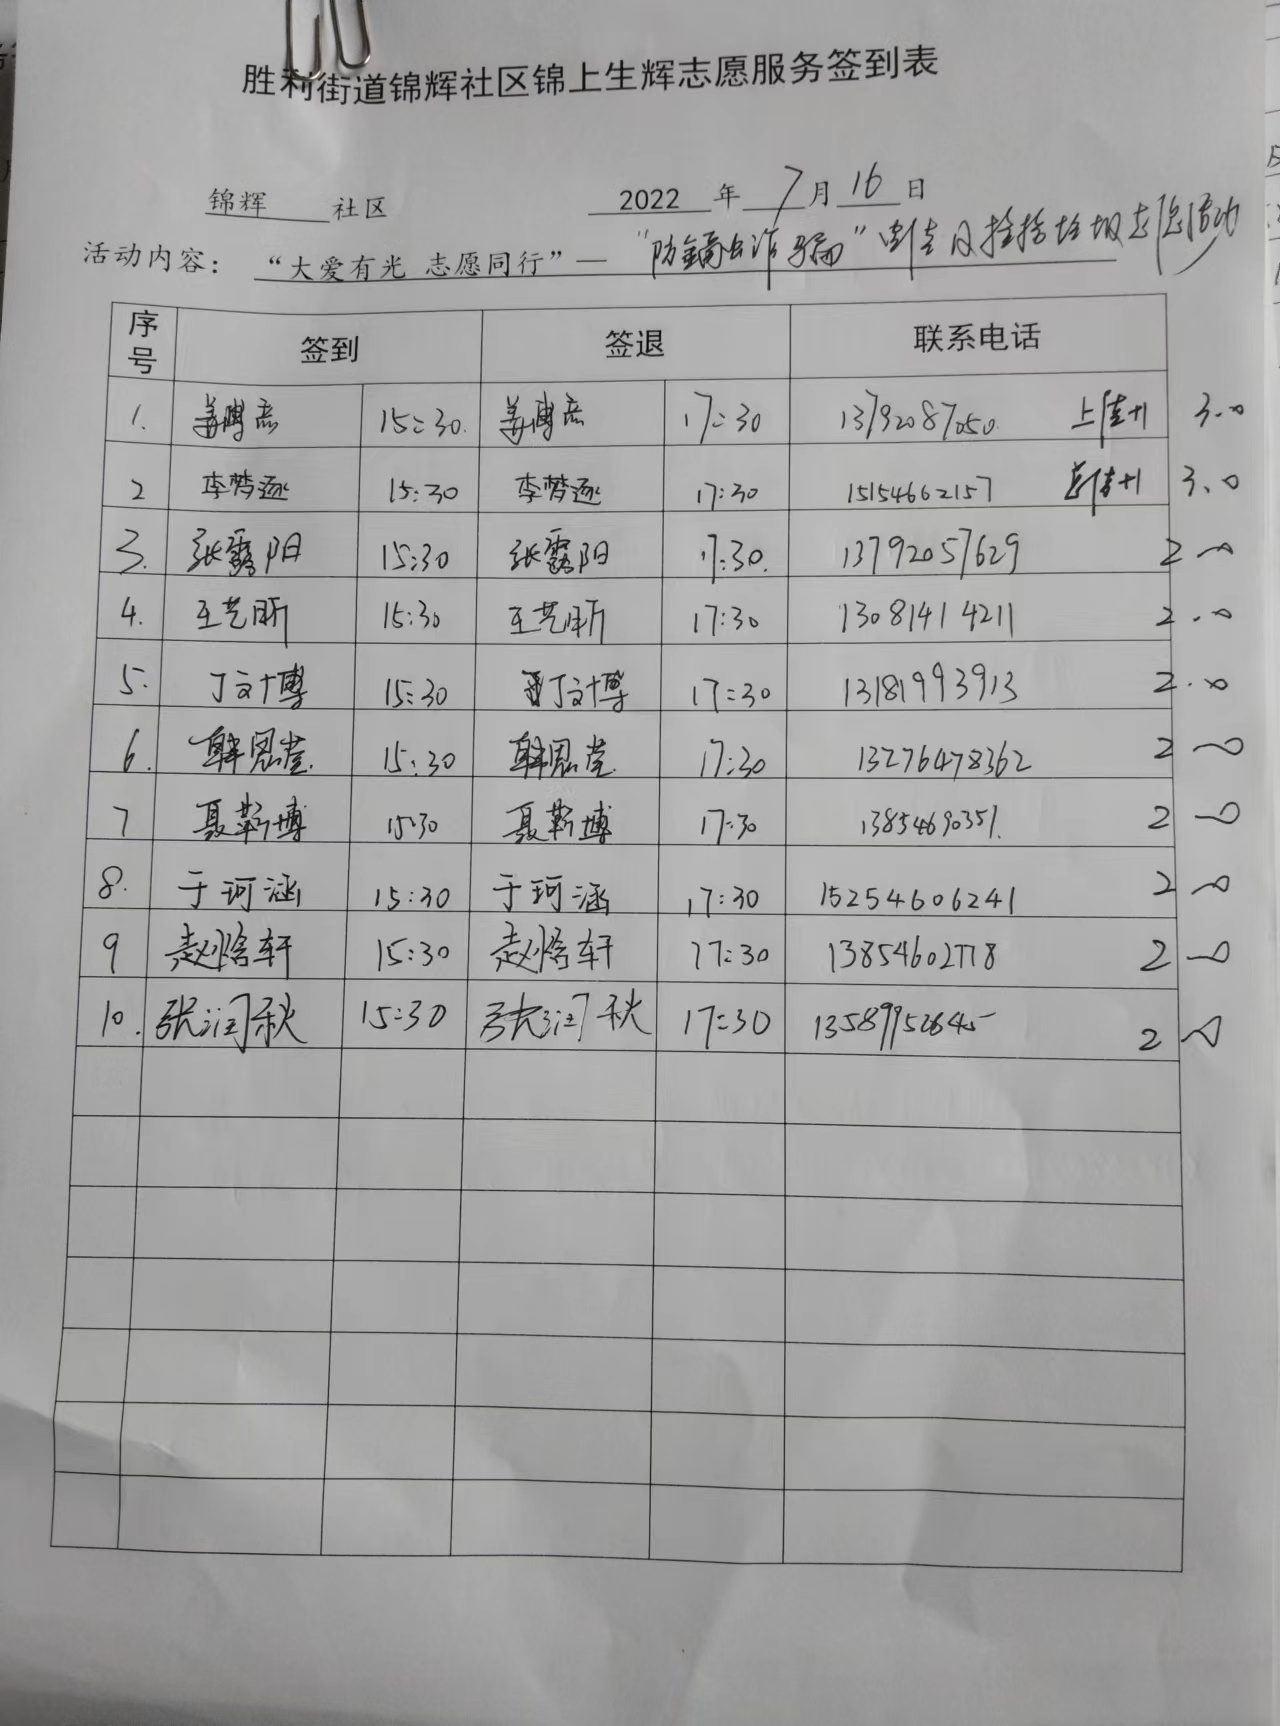 胜利街道锦辉社区锦上生辉志愿服务签到表
锦辉 社区 2022 年 7 月 16 日
活动内容: “大爱有光 志愿同行”— “防 诈骗” 及捡拾垃圾志愿活动
序号 签到 签退 联系电话
1. 姜博 15:30. 姜博 17:30 13792087050. +1 3.0
2 李梦逐 15:30 李梦逐 17:30 15154662157 +1 3.0
3. 张露阳 15:30 张露阳 17:30. 13792057629 2.0
4. 王艺昕 15:30 王艺昕 17:30 13081414211 2.0
5. 丁文博 15:30 丁文博 17:30 13181993913 2.0
6. 韩恩 15:30 韩恩 17:30 13276478362 2.0
7 聂靳博 15:30 聂靳博 17:30 13854690351. 2.0
8. 于珂涵 15:30 于珂涵 17:30 15254606241 2.0
9 赵 轩 15:30 赵 轩 17:30 13854602778 2.0
10. 张润秋 15:30 张润秋 17:30 2.0